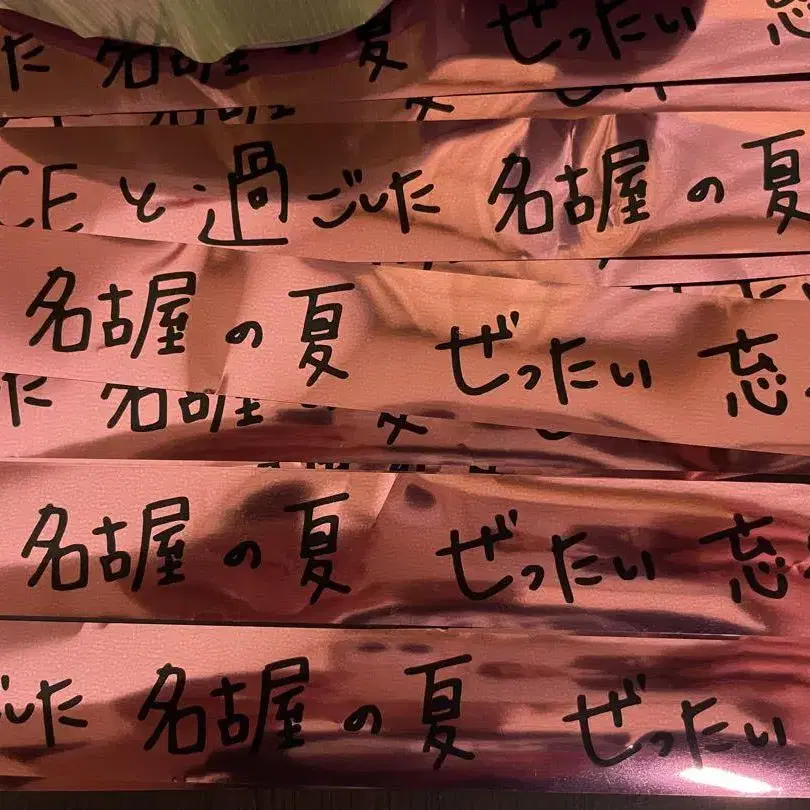 た 名古屋の夏 ぜったい 忘
CEと過ごした 名古屋の夏
名古屋の夏 ぜったい 忘
た 名古屋
名古屋の夏 ぜったい 忘
ごした 名古屋の夏 ぜったい